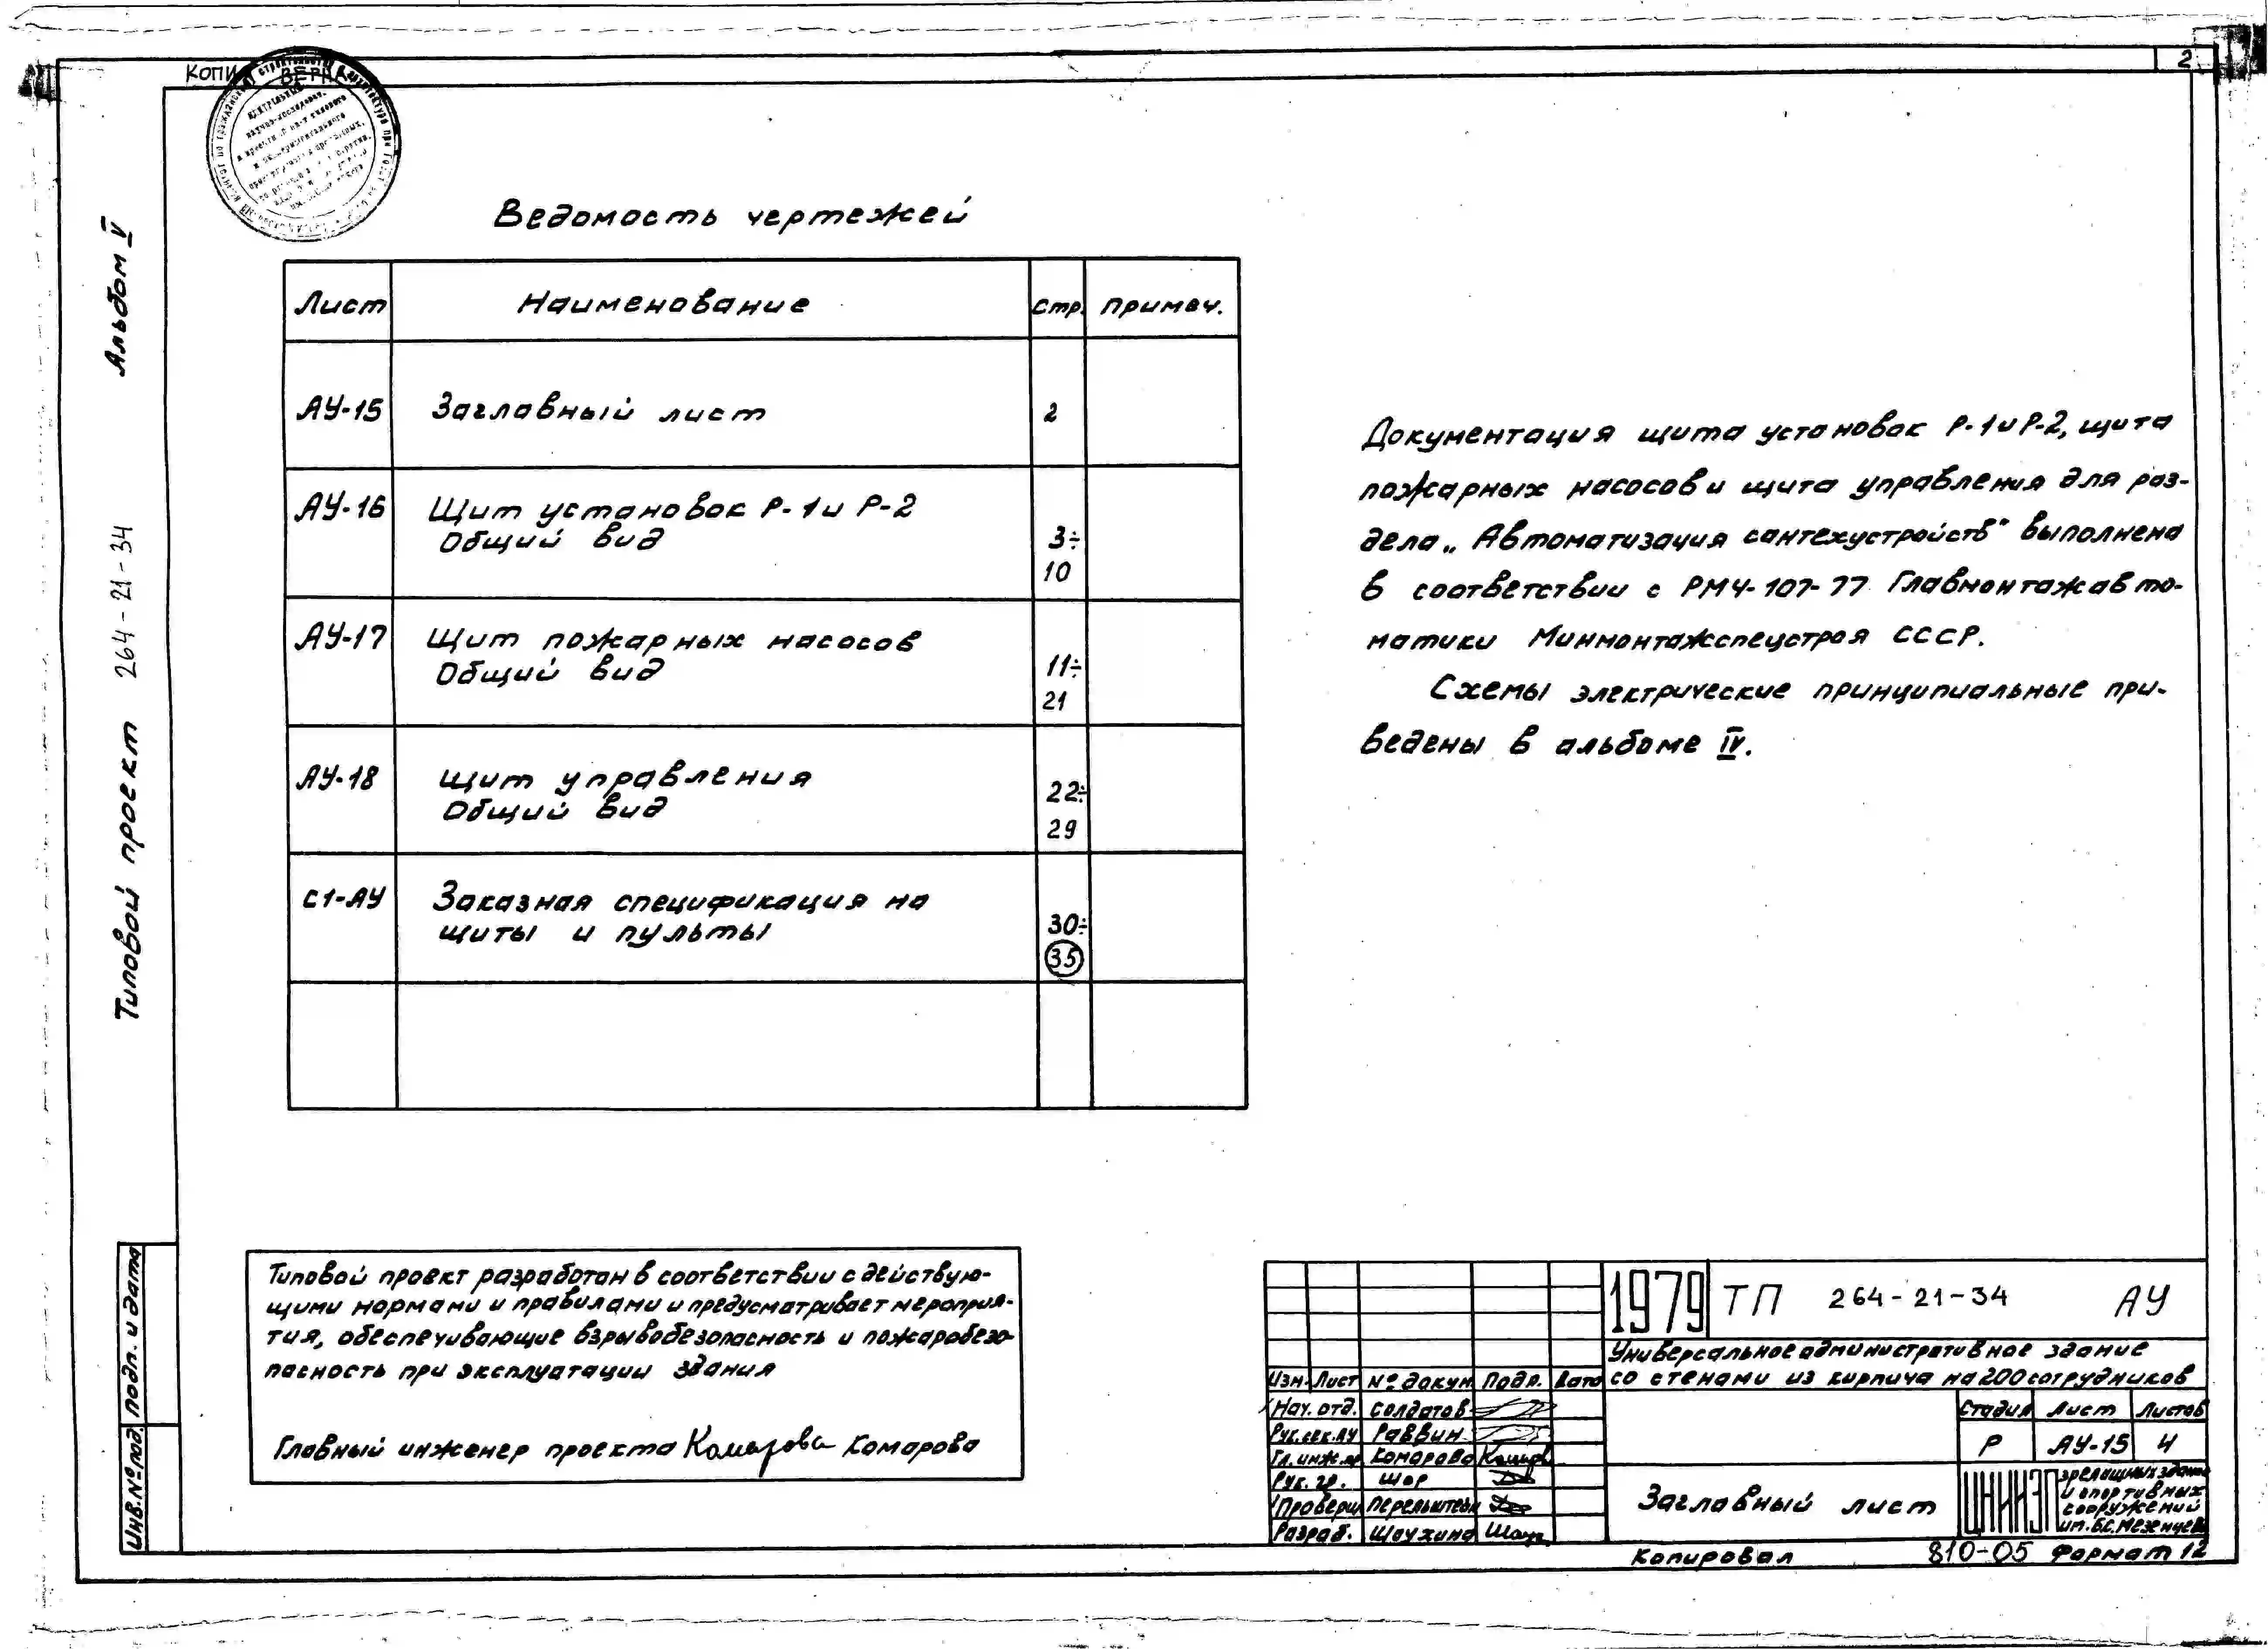 2
КОПИ ВЕРНА
Альбом V
Типовой проект 264-21-34
Ведомость чертежей
Лист Наименование Стр. Примеч.
АУ-15 Заглавный лист 2
АУ-16 Щит установок Р-1 и Р-2
Общий вид 3÷
10
АУ-17 Щит пожарных насосов
Общий вид 11÷
21
АУ-18 Щит управления
Общий вид 22÷
29
С1-АУ Заказная спецификация на
щиты и пульты 30÷
35
Документация щита установок Р-1 и Р-2, щита
пожарных насосов и щита управления для раз-
дела „Автоматизация сантехустройств" выполнена
в соответствии с РМ4-107-77 Главмонтажавто-
матики Минмонтажспецстроя СССР.
Схемы электрические принципиальные при-
ведены в альбоме IV.
Типовой проект разработан в соответствии с действую-
щими нормами и правилами и предусматривает мероприя-
тия, обеспечивающие взрывобезопасность и пожаробезо-
пасность при эксплуатации здания
Главный инженер проекта Комарова Комарова
Инв.№ под. подп. и дата
1979 ТП 264-21-34 АУ
Универсальное административное здание
со стенами из кирпича на 200 сотрудников
Изм. Лист № докум. Подп. Дата
Нач. отд. Солдатов
Рук. сек. АУ Раввин
Гл. инж. пр. Комарова
Рук. гр. Шор
Провери Перельштейн
Разраб. Шаухина
Стадия Лист Листов
Р АУ-15 4
Заглавный лист
ЦНИИЭП зрелищных зданий
и спортивных
сооружений
им. Б.С. Мезенцева
Копировал 810-05 Формат 12